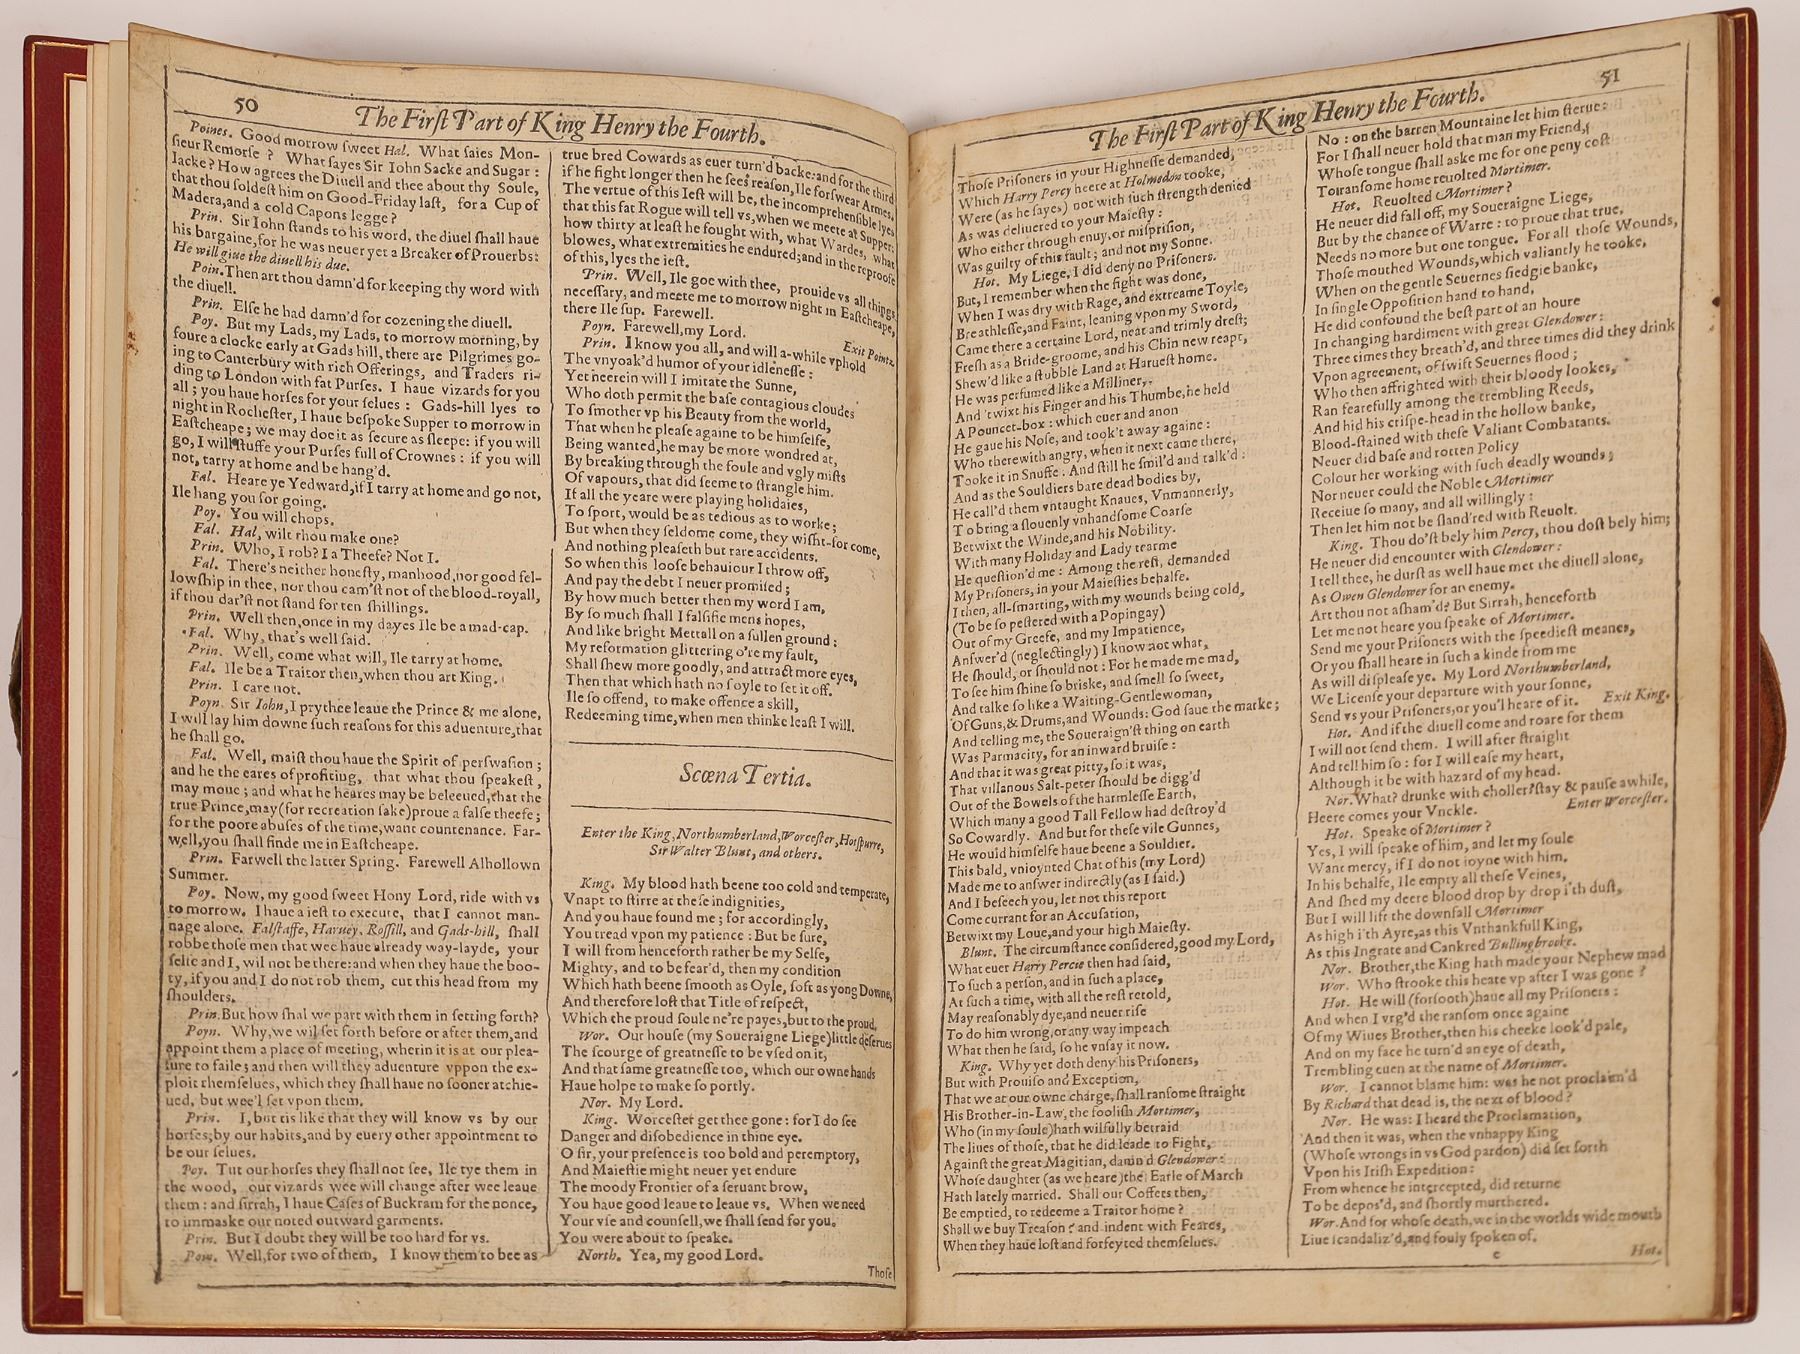 50
The First Part of King Henry the Fourth.
Poines. Good morrow sweet Hal. What saies Mon-
sieur Remorse? What sayes Sir Iohn Sacke and Sugar:
Iacke? How agrees the Diuell and thee about thy Soule,
that thou soldest him on Good-Friday last, for a Cup of
Madera, and a cold Capons legge?
Prin. Sir Iohn stands to his word, the diuel shall haue
his bargaine, for he was neuer yet a Breaker of Prouerbs:
He will giue the diuell his due.
Poin. Then art thou damn'd for keeping thy word with
the diuell.
Prin. Else he had damn'd for cozening the diuell.
Poy. But my Lads, my Lads, to morrow morning, by
foure a clocke early at Gads hill, there are Pilgrimes go-
ing to Canterbury with rich Offerings, and Traders ri-
ding to London with fat Purses. I haue vizards for you
all; you haue horses for your selues: Gads-hill lyes to
night in Rochester, I haue bespoke Supper to morrow in
Eastcheape; we may doe it as secure as sleepe: if you will
go, I will stuffe your Purses full of Crownes: if you will
not, tarry at home and be hang'd.
Fal. Heare ye Yedward, if I tarry at home and go not,
Ile hang you for going.
Poy. You will chops.
Fal. Hal, wilt thou make one?
Prin. Who, I rob? I a Theefe? Not I.
Fal. There's neither honesty, manhood, nor good fel-
lowship in thee, nor thou cam'st not of the blood-royall,
if thou dar'st not stand for ten shillings.
Prin. Well then, once in my dayes Ile be a mad-cap.
Fal. Why, that's well said.
Prin. Well, come what will, Ile tarry at home.
Fal. Ile be a Traitor then, when thou art King.
Prin. I care not.
Poyn. Sir Iohn, I prythee leaue the Prince & me alone,
I will lay him downe such reasons for this aduenture, that
he shall go.
Fal. Well, maist thou haue the Spirit of perswasion;
and he the eares of profiting, that what thou speakest,
may moue; and what he heares may be beleeued, that the
true Prince, may (for recreation sake) proue a false theefe;
for the poore abuses of the time, want countenance. Far-
well, you shall finde me in Eastcheape.
Prin. Farwell the latter Spring. Farewell Alhollown
Summer.
Poy. Now, my good sweet Hony Lord, ride with vs
to morrow. I haue a iest to execute, that I cannot man-
nage alone. Falstaffe, Haruey, Rossill, and Gads-hill, shall
robbe those men that wee haue already way-layde, your
selfe and I, wil not be there: and when they haue the boo-
ty, if you and I do not rob them, cut this head from my
shoulders.
Prin. But how shal we part with them in setting forth?
Poyn. Why, we wil set forth before or after them, and
appoint them a place of meeting, wherin it is at our plea-
sure to faile; and then will they aduenture vppon the ex-
ploit themselues, which they shall haue no sooner atchie-
ued, but wee'l set vpon them.
Prin. I, but tis like that they will know vs by our
horses, by our habits, and by euery other appointment to
be our selues.
Poy. Tut our horses they shall not see, Ile tye them in
the wood, our vizards wee will change after wee leaue
them: and sirrah, I haue Cases of Buckram for the nonce,
to immaske our noted outward garments.
Prin. But I doubt they will be too hard for vs.
Poin. Well, for two of them, I know them to bee as
true bred Cowards as euer turn'd backe: and for the third
if he fight longer then he sees reason, Ile forswear Armes.
The vertue of this Iest will be, the incomprehensible lyes
that this fat Rogue will tell vs, when we meete at Supper:
how thirty at least he fought with, what Wardes, what
blowes, what extremities he endured; and in the reproofe
of this, lyes the iest.
Prin. Well, Ile goe with thee, prouide vs all things
necessary, and meete me to morrow night in Eastcheape,
there Ile sup. Farewell.
Poyn. Farewell, my Lord.
Exit Pointz.
Prin. I know you all, and will a-while vphold
The vnyoak'd humor of your idlenesse:
Yet heerein will I imitate the Sunne,
Who doth permit the base contagious cloudes
To smother vp his Beauty from the world,
That when he please againe to be himselfe,
Being wanted, he may be more wondred at,
By breaking through the foule and vgly mists
Of vapours, that did seeme to strangle him.
If all the yeare were playing holidaies,
To sport, would be as tedious as to worke;
But when they seldome come, they wisht-for come,
And nothing pleaseth but rare accidents.
So when this loose behauiour I throw off,
And pay the debt I neuer promised;
By how much better then my word I am,
By so much shall I falsifie mens hopes,
And like bright Mettall on a sullen ground:
My reformation glittering o're my fault,
Shall shew more goodly, and attract more eyes,
Then that which hath no foyle to set it off.
Ile so offend, to make offence a skill,
Redeeming time, when men thinke least I will.
Scœna Tertia.
Enter the King, Northumberland, Worcester, Hotspurre,
Sir Walter Blunt, and others.
King. My blood hath beene too cold and temperate,
Vnapt to stirre at these indignities,
And you haue found me; for accordingly,
You tread vpon my patience: But be sure,
I will from henceforth rather be my Selfe,
Mighty, and to be fear'd, then my condition
Which hath beene smooth as Oyle, soft as yong Downe,
And therefore lost that Title of respect,
Which the proud soule ne're payes, but to the proud.
Wor. Our house (my Soueraigne Liege) little deserues
The scourge of greatnesse to be vsed on it,
And that same greatnesse too, which our owne hands
Haue holpe to make so portly.
Nor. My Lord.
King. Worcester get thee gone: for I do see
Danger and disobedience in thine eye.
O sir, your presence is too bold and peremptory,
And Maiestie might neuer yet endure
The moody Frontier of a seruant brow,
You haue good leaue to leaue vs. When we need
Your vse and counsell, we shall send for you.
You were about to speake.
North. Yea, my good Lord.
Those
51
The First Part of King Henry the Fourth.
Those Prisoners in your Highnesse demanded,
Which Harry Percy heere at Holmedon tooke,
Were (as he sayes) not with such strength denied
As was deliuered to your Maiesty:
Who either through enuy, or misprision,
Was guilty of this fault; and not my Sonne.
Hot. My Liege, I did deny no Prisoners.
But, I remember when the fight was done,
When I was dry with Rage, and extreame Toyle,
Breathlesse, and Faint, leaning vpon my Sword,
Came there a certaine Lord, neat and trimly drest;
Fresh as a Bride-groome, and his Chin new reapt,
Shew'd like a stubble Land at Haruest home.
He was perfumed like a Milliner,
And 'twixt his Finger and his Thumbe, he held
A Pouncet-box: which euer and anon
He gaue his Nose, and took't away againe:
Who therewith angry, when it next came there,
Tooke it in Snuffe. And still he smil'd and talk'd:
And as the Souldiers bare dead bodies by,
He call'd them vntaught Knaues, Vnmannerly,
To bring a slouenly vnhandsome Coarse
Betwixt the Winde, and his Nobility.
With many Holiday and Lady tearme
He question'd me: Among the rest, demanded
My Prisoners, in your Maiesties behalfe.
I then, all-smarting, with my wounds being cold,
(To be so pestered with a Popingay)
Out of my Greefe, and my Impatience,
Answer'd (neglectingly) I know not what,
He should, or should not: For he made me mad,
To see him shine so briske, and smell so sweet,
And talke so like a Waiting-Gentlewoman,
Of Guns, & Drums, and Wounds: God saue the marke;
And telling me, the Soueraign'st thing on earth
Was Parmacity, for an inward bruise:
And that it was great pitty, so it was,
That villanous Salt-peter should be digg'd
Out of the Bowels of the harmlesse Earth,
Which many a good Tall Fellow had destroy'd
So Cowardly. And but for these vile Gunnes,
He would himselfe haue beene a Souldier.
This bald, vnioynted Chat of his (my Lord)
Made me to answer indirectly (as I said.)
And I beseech you, let not this report
Come currant for an Accusation,
Betwixt my Loue, and your high Maiesty.
Blunt. The circumstance considered, good my Lord,
What euer Harry Percie then had said,
To such a person, and in such a place,
At such a time, with all the rest retold,
May reasonably dye, and neuer rise
To do him wrong, or any way impeach
What then he said, so he vnsay it now.
King. Why yet doth deny his Prisoners,
But with Prouiso and Exception,
That we at our owne charge, shall ransome straight
His Brother-in-Law, the foolish Mortimer,
Who (in my soule) hath wilfully betraid
The liues of those, that he did leade to Fight,
Against the great Magitian, damn'd Glendower:
Whose daughter (as we heare) the Earle of March
Hath lately married. Shall our Coffers then,
Be emptied, to redeeme a Traitor home?
Shall we buy Treason? and indent with Feares,
When they haue lost and forfeyted themselues.
No: on the barren Mountaine let him sterue:
For I shall neuer hold that man my Friend,
Whose tongue shall aske me for one peny cost
To ransome home reuolted Mortimer.
Hot. Reuolted Mortimer?
He neuer did fall off, my Soueraigne Liege,
But by the chance of Warre: to proue that true,
Needs no more but one tongue. For all those Wounds,
Those mouthed Wounds, which valiantly he tooke,
When on the gentle Seuernes siedgie banke,
In single Opposition hand to hand,
He did confound the best part of an houre
In changing hardiment with great Glendower:
Three times they breath'd, and three times did they drink
Vpon agreement, of swift Seuernes flood;
Who then affrighted with their bloody lookes,
Ran fearefully among the trembling Reeds,
And hid his crispe-head in the hollow banke,
Blood-stained with these Valiant Combatants.
Neuer did base and rotten Policy
Colour her working with such deadly wounds;
Nor neuer could the Noble Mortimer
Receiue so many, and all willingly:
Then let him not be sland'red with Reuolt.
King. Thou do'st bely him Percy, thou dost bely him;
He neuer did encounter with Glendower:
I tell thee, he durst as well haue met the diuell alone,
As Owen Glendower for an enemy.
Art thou not asham'd? But Sirrah, henceforth
Let me not heare you speake of Mortimer.
Send me your Prisoners with the speediest meanes,
Or you shall heare in such a kinde from me
As will displease ye. My Lord Northumberland,
We License your departure with your sonne,
Send vs your Prisoners, or you'l heare of it. Exit King.
Hot. And if the diuell come and roare for them
I will not send them. I will after straight
And tell him so: for I will ease my heart,
Although it be with hazard of my head.
Nor. What? drunke with choller? stay & pause awhile,
Heere comes your Vnckle. Enter Worcester.
Hot. Speake of Mortimer?
Yes, I will speake of him, and let my soule
Want mercy, if I do not ioyne with him.
In his behalfe, Ile empty all these Veines,
And shed my deere blood drop by drop i'th dust,
But I will lift the downfall Mortimer
As high i'th Ayre, as this Vnthankfull King,
As this Ingrate and Cankred Bullingbrooke.
Nor. Brother, the King hath made your Nephew mad
Wor. Who strooke this heate vp after I was gone?
Hot. He will (forsooth) haue all my Prisoners:
And when I vrg'd the ransom once againe
Of my Wiues Brother, then his cheeke look'd pale,
And on my face he turn'd an eye of death,
Trembling euen at the name of Mortimer.
Wor. I cannot blame him: was he not proclaim'd
By Richard that dead is, the next of blood?
Nor. He was: I heard the Proclamation,
And then it was, when the vnhappy King
(Whose wrongs in vs God pardon) did set forth
Vpon his Irish Expedition:
From whence he intercepted, did returne
To be depos'd, and shortly murthered.
Wor. And for whose death, we in the worlds wide mouth
Liue scandaliz'd, and fouly spoken of.
e
Hot.